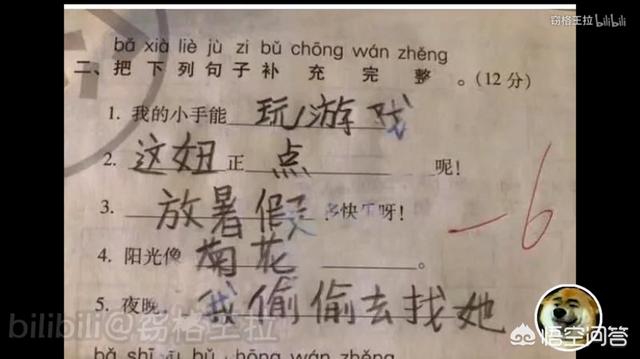 窃格王拉 bilibili
bǎ xià liè jù zi bǔ chōng wán zhěng
二、把下列句子补充完整。(12分)
1. 我的小手能玩游戏
2. 这妞正点呢!
3. 放暑假多快乐呀!
-6
4. 阳光像菊花。
5. 夜晚,我偷偷去找她
bilibili@窃格王拉
悟空问答
bǎ shī bǔ chōng wán